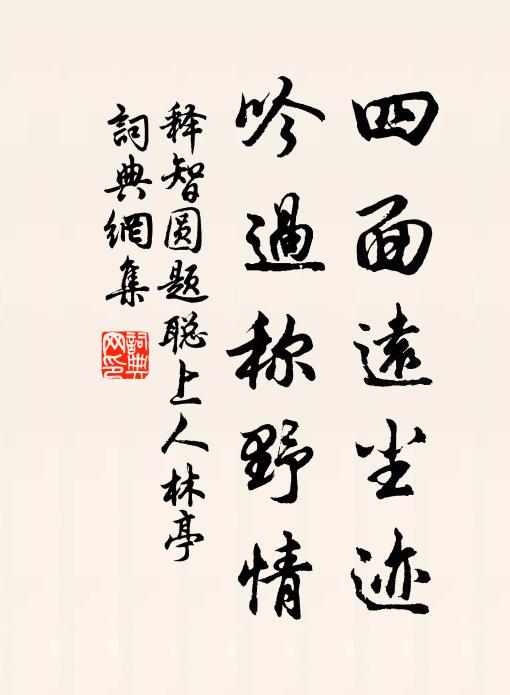 四面遠尘迹
吟過称野情
释智圆题聪上人林亭
詞典網集
詞典网印